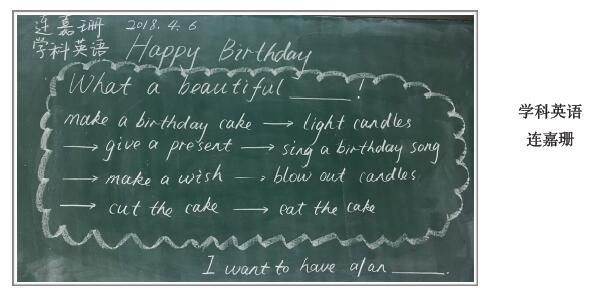 连嘉珊 2018.4.6
学科英语 Happy Birthday
What a beautiful ______!
make a birthday cake → light candles
→ give a present → sing a birthday song
→ make a wish → blow out candles
→ cut the cake → eat the cake
I want to have a/an ______.
学科英语
连嘉珊